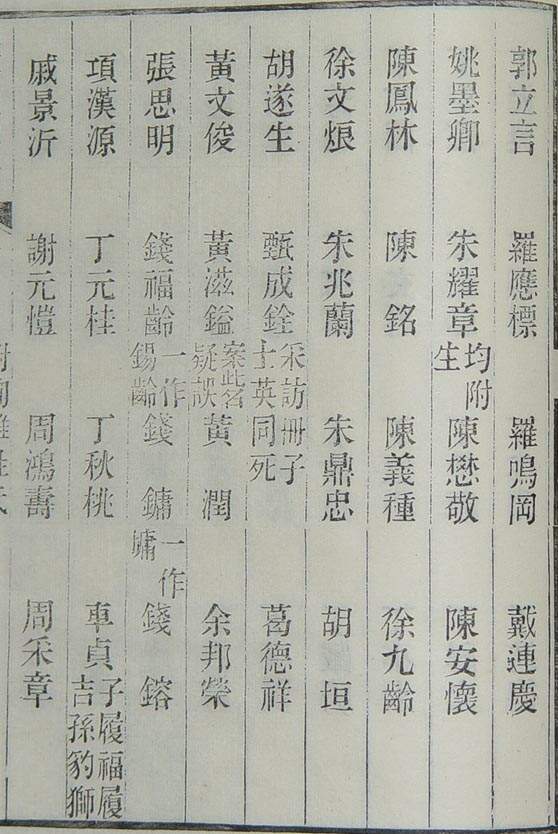 郭立言　羅應標　羅鳴岡　戴連慶
姚墨卿　朱耀章均附生　陳懋敬　陳安懷
陳鳳林　陳銘　陳義種　徐九齡
徐文烺　朱兆蘭　朱鼎忠　胡垣
胡遂生　甄成銓采訪冊子士英同死　葛德祥
黃文俊　黃滋鎰案此名疑誤　黃潤　余邦榮
張思明　錢福齡一作錫齡　錢鏞一作墉　錢鎔
項漢源　丁元桂　丁秋桃　車貞吉子履福履孫豹獅
戚景沂　謝元愷　周鴻壽　周采章